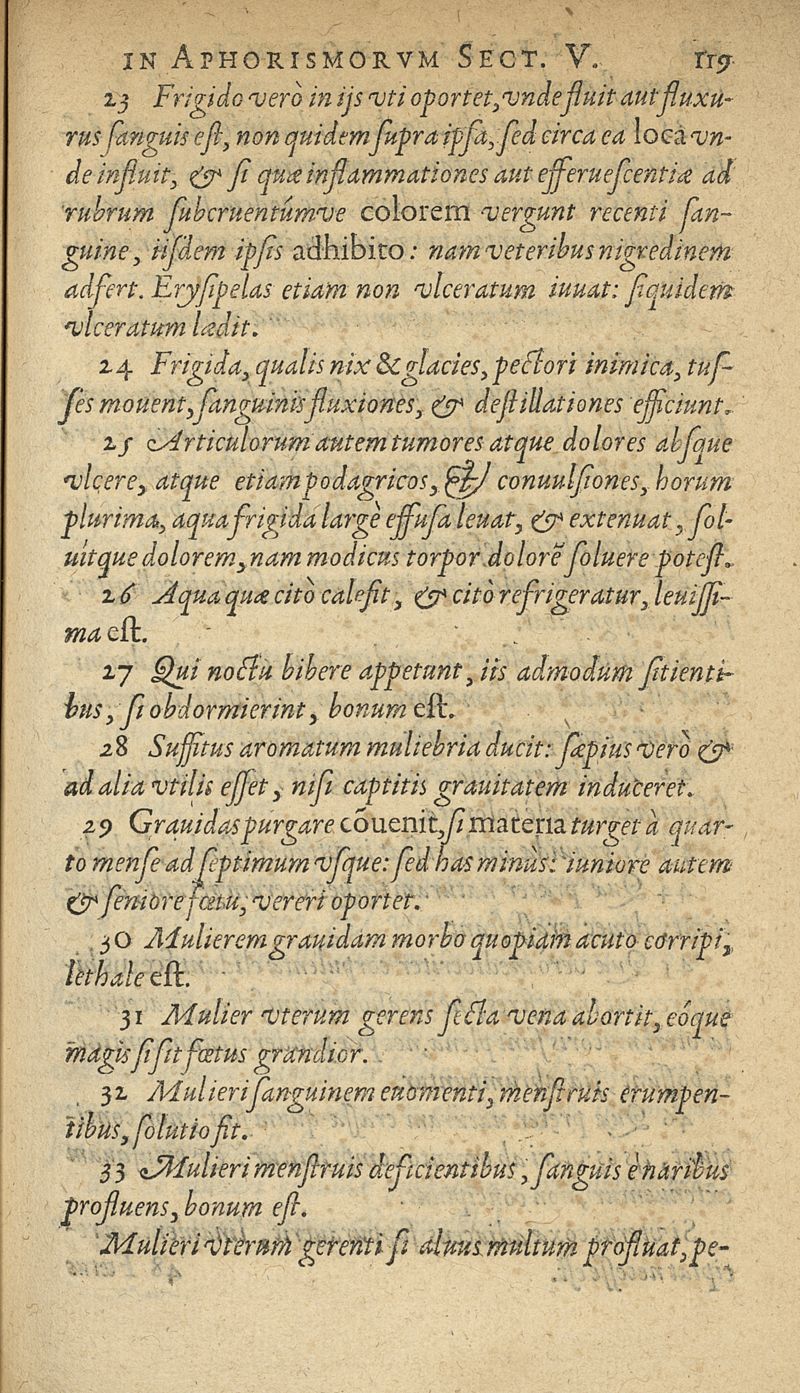 IN APHORISMORVM SECT. V. 119
23 Frigido verò in ijs vti oportet, vnde fluit aut fluxu-
rus sanguis est, non quidem supra ipsa, sed circa ea loca vn-
de influit, & si quæ inflammationes aut efferuescentiæ ad
rubrum subcruentúmve colorem vergunt recenti san-
guine, iisdem ipsis adhibito: nam veteribus nigredinem
adfert. Erysipelas etiam non vlceratum iuuat: siquidem
vlceratum lædit.
24 Frigida, qualis nix & glacies, pectori inimica, tus-
ses mouent, sanguinis fluxiones, & destillationes efficiunt.
25 Articulorum autem tumores atque dolores absque
vlcere, atque etiam podagricos, & conuulsiones, horum
plurima, aqua frigida largè effusa leuat, & extenuat, sol-
uitque dolorem, nam modicus torpor dolorẽ soluere potest.
26 Aqua quæ citò calefit, & citò refrigeratur, leuissi-
ma est.
27 Qui noctu bibere appetunt, iis admodum sitienti-
bus, si obdormierint, bonum est.
28 Suffitus aromatum muliebria ducit: sæpius verò &
ad alia vtilis esset, nisi captitis grauitatem induceret.
29 Grauidas purgare cõuenit, si materia turget à quar-
to mense ad septimum vsque: sed has minùs: iuniore autem
& seniore fœtu, vereri oportet.
30 Mulierem grauidam morbo quopiam acuto corripi,
lethale est.
31 Mulier vterum gerens secta vena abortit, eóque
magis si sit fœtus grandior.
32 Mulieri sanguinem euomenti, menstruis erumpen-
tibus, solutio fit.
33 Mulieri menstruis deficientibus, sanguis è naribus
profluens, bonum est.
Mulieri vterum gerenti si aluus multum profluat, pe-